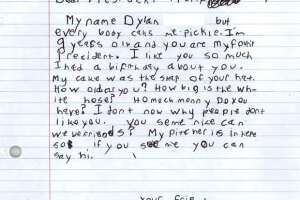 Dear President
My name Dylan but
everybody cals me pickle. I'm
9 years old and you are my favrit
President. I like you so much
I had a birthday about you.
My cake was the shap of your hat.
How old ar you? How big is the wh-
ite hose? How much monny do you
have? I don't now why people don't
like you. You seme nice can
we be friends? My picher is in here
so if you see me you can
say hi.
your frie